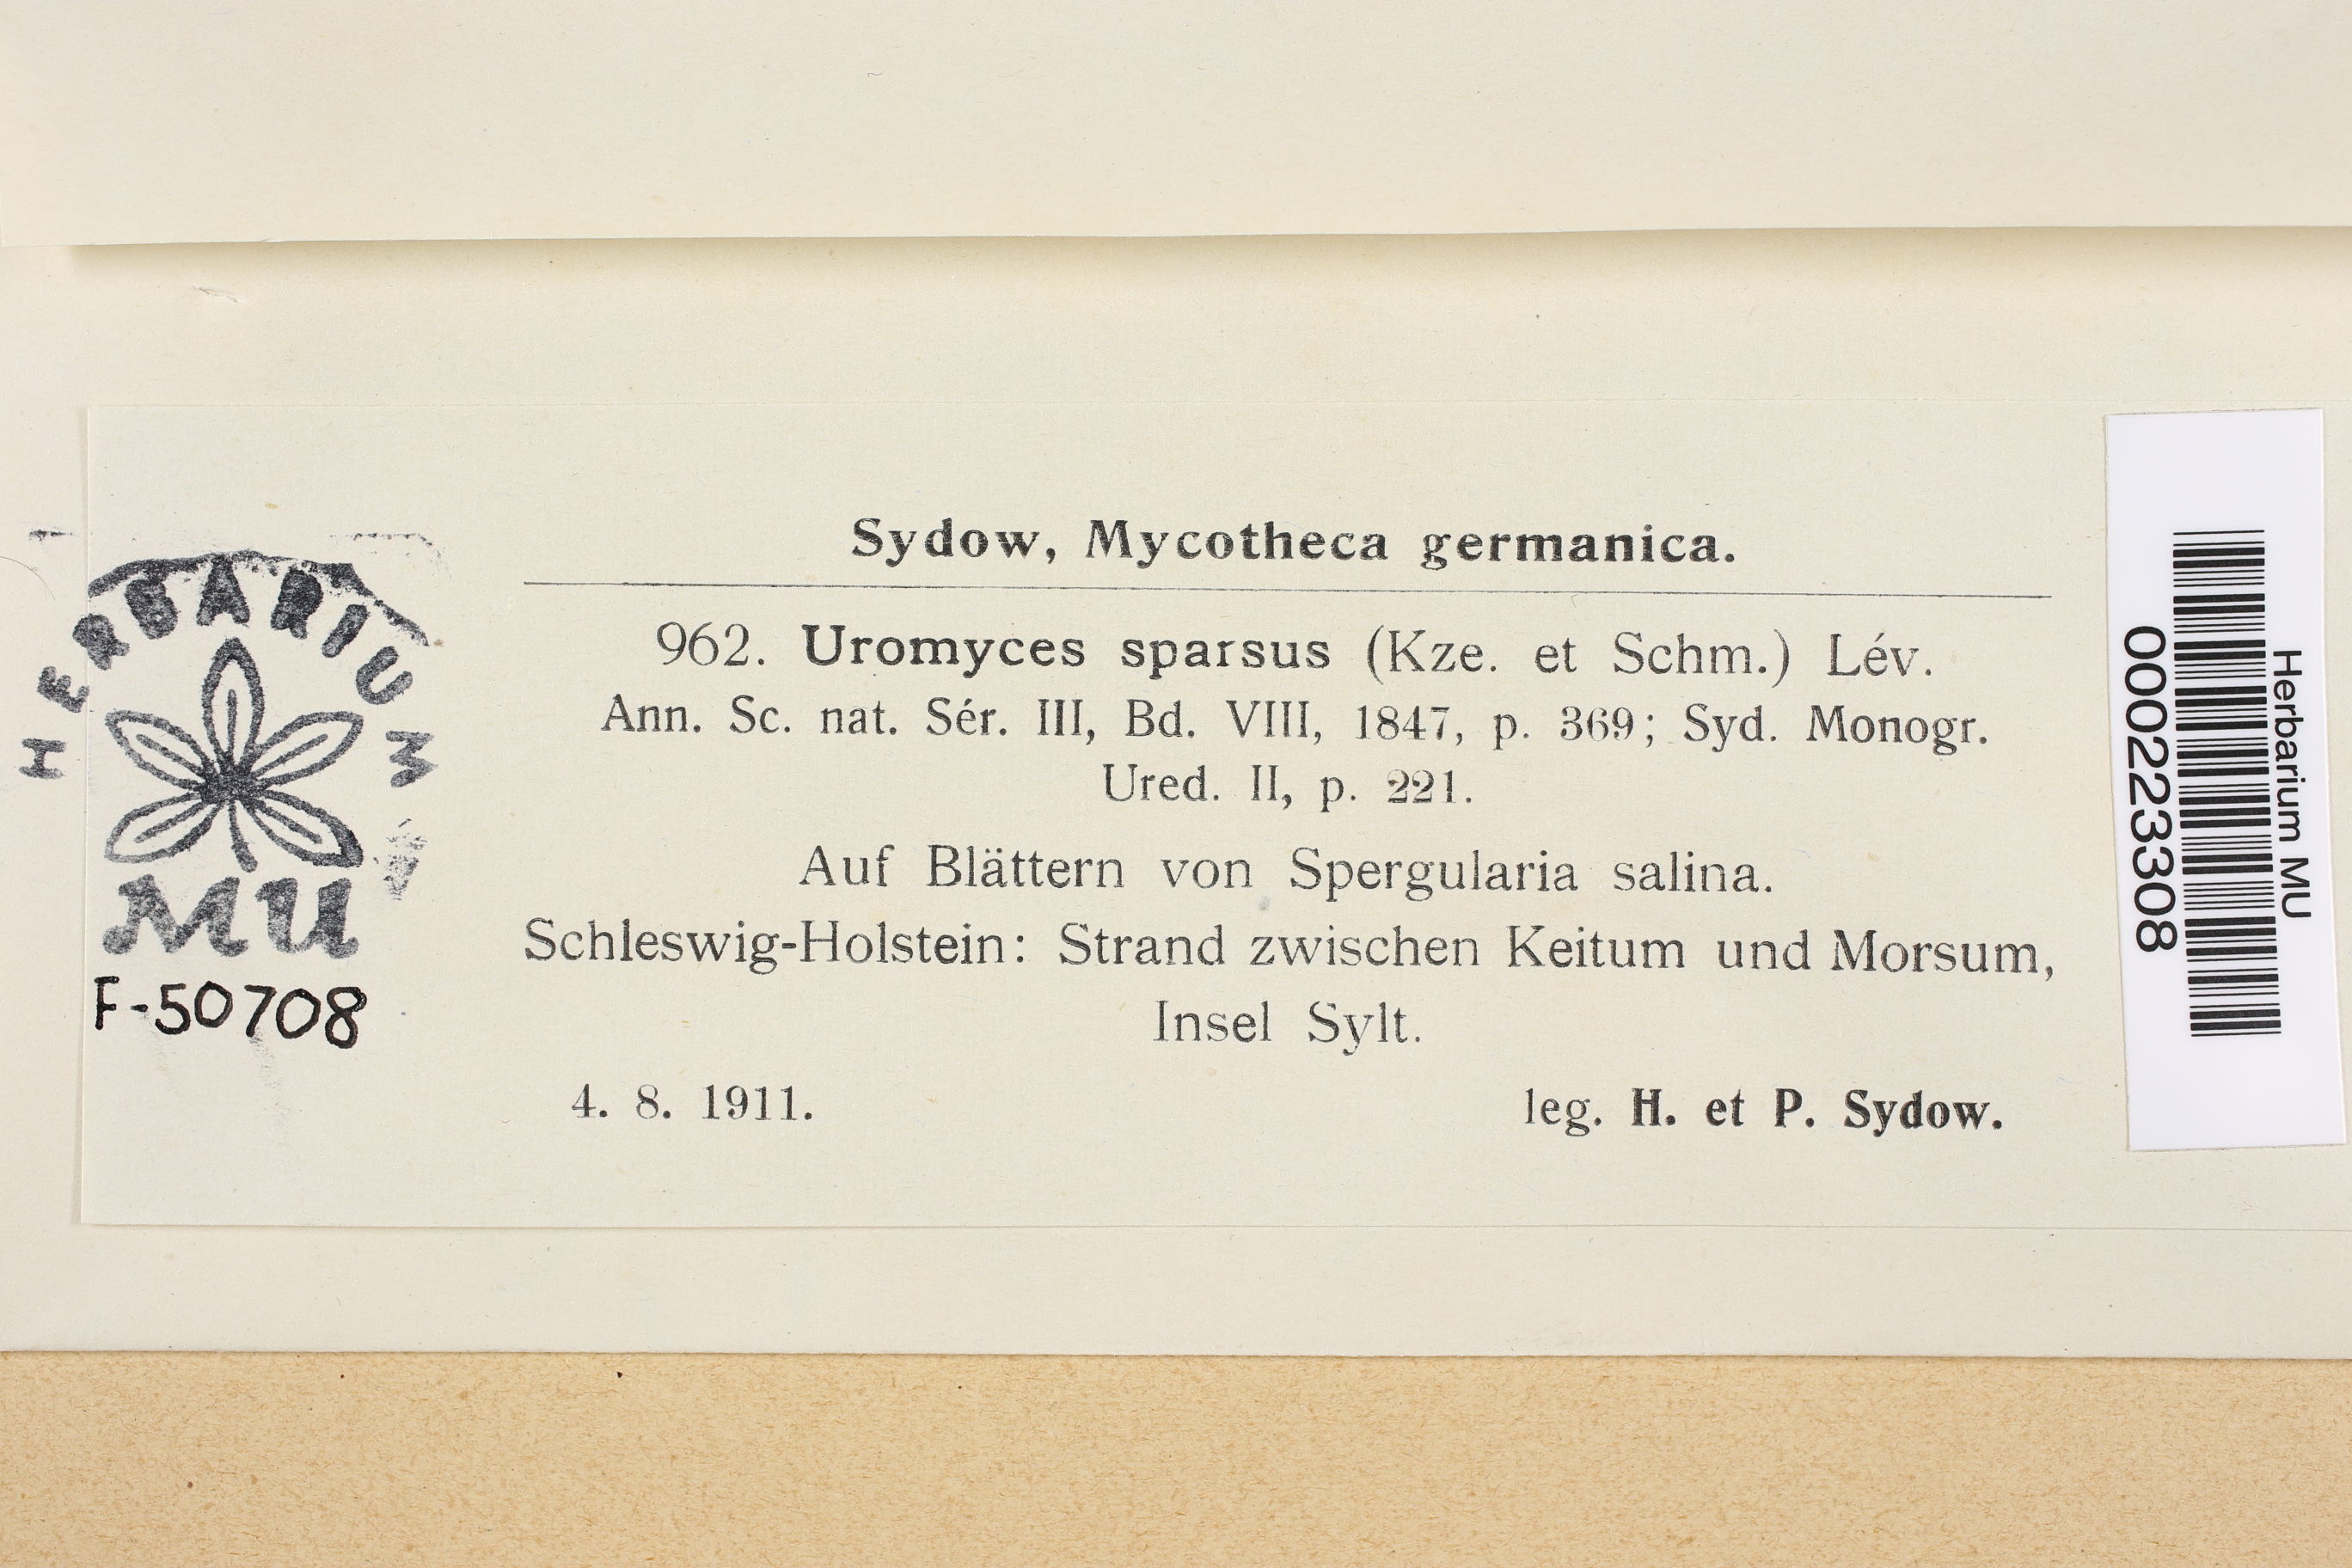 Sydow, Mycotheca germanica.
962. Uromyces sparsus (Kze. et Schm.) Lév.
Ann. Sc. nat. Sér. III, Bd. VIII, 1847, p. 369; Syd. Monogr.
Ured. II, p. 221.
Auf Blättern von Spergularia salina.
Schleswig-Holstein: Strand zwischen Keitum und Morsum,
Insel Sylt.
4. 8. 1911. leg. H. et P. Sydow.
HERBARIUM
MU
F-50708
Herbarium MU
000223308